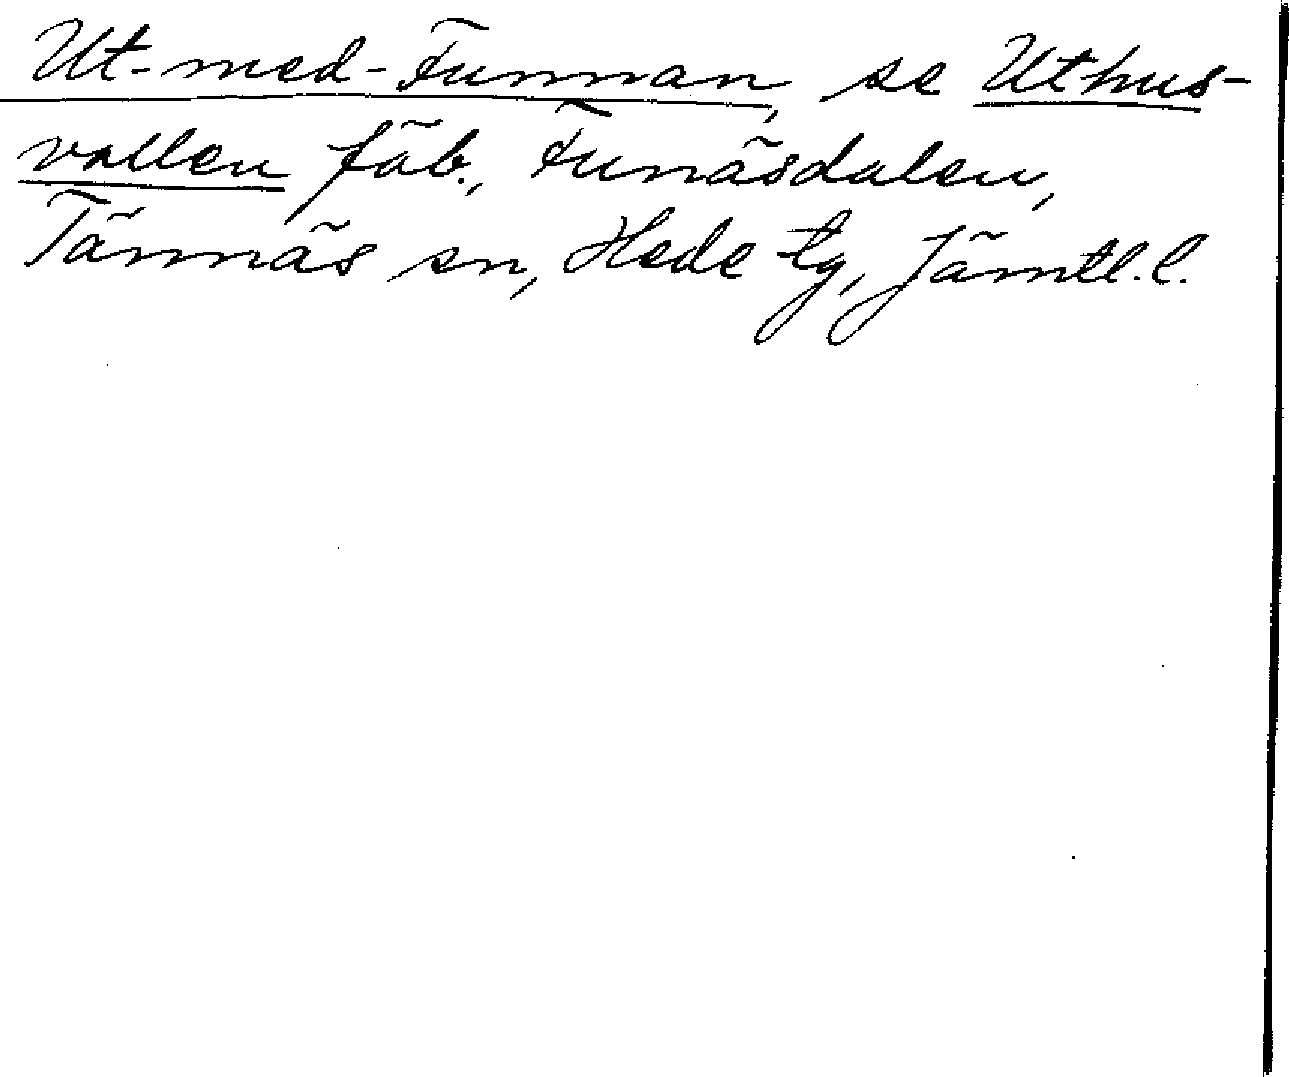 Ut-med-Funnan, se Uthus-
vallen fäb., Funäsdalen,
Tännäs sn, Hede tg, Jämtl. l.